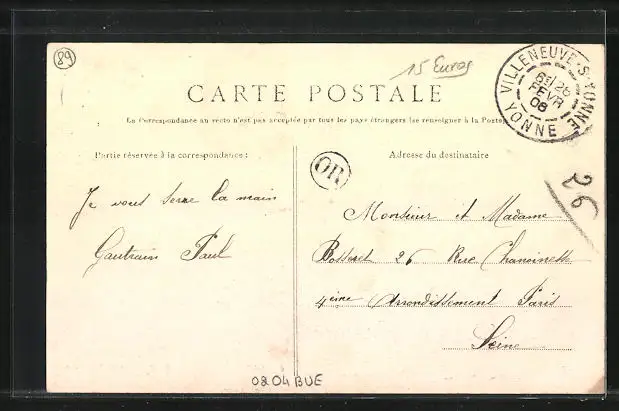 89
15 Euros
CARTE POSTALE
VILLENEUVE-S-YONNE
6E/26
FEVR
08
YONNE
La Correspondance au recto n'est pas acceptée par tous les pays étrangers (se renseigner à la Poste)
Partie réservée à la correspondance :
Adresse du destinataire
OR
26
Je vous serre la main
Gautrain Paul
Monsieur et Madame
Botteret 26 Rue Chanoinesse
4eme Arrondissement Paris
Seine
0804BUE